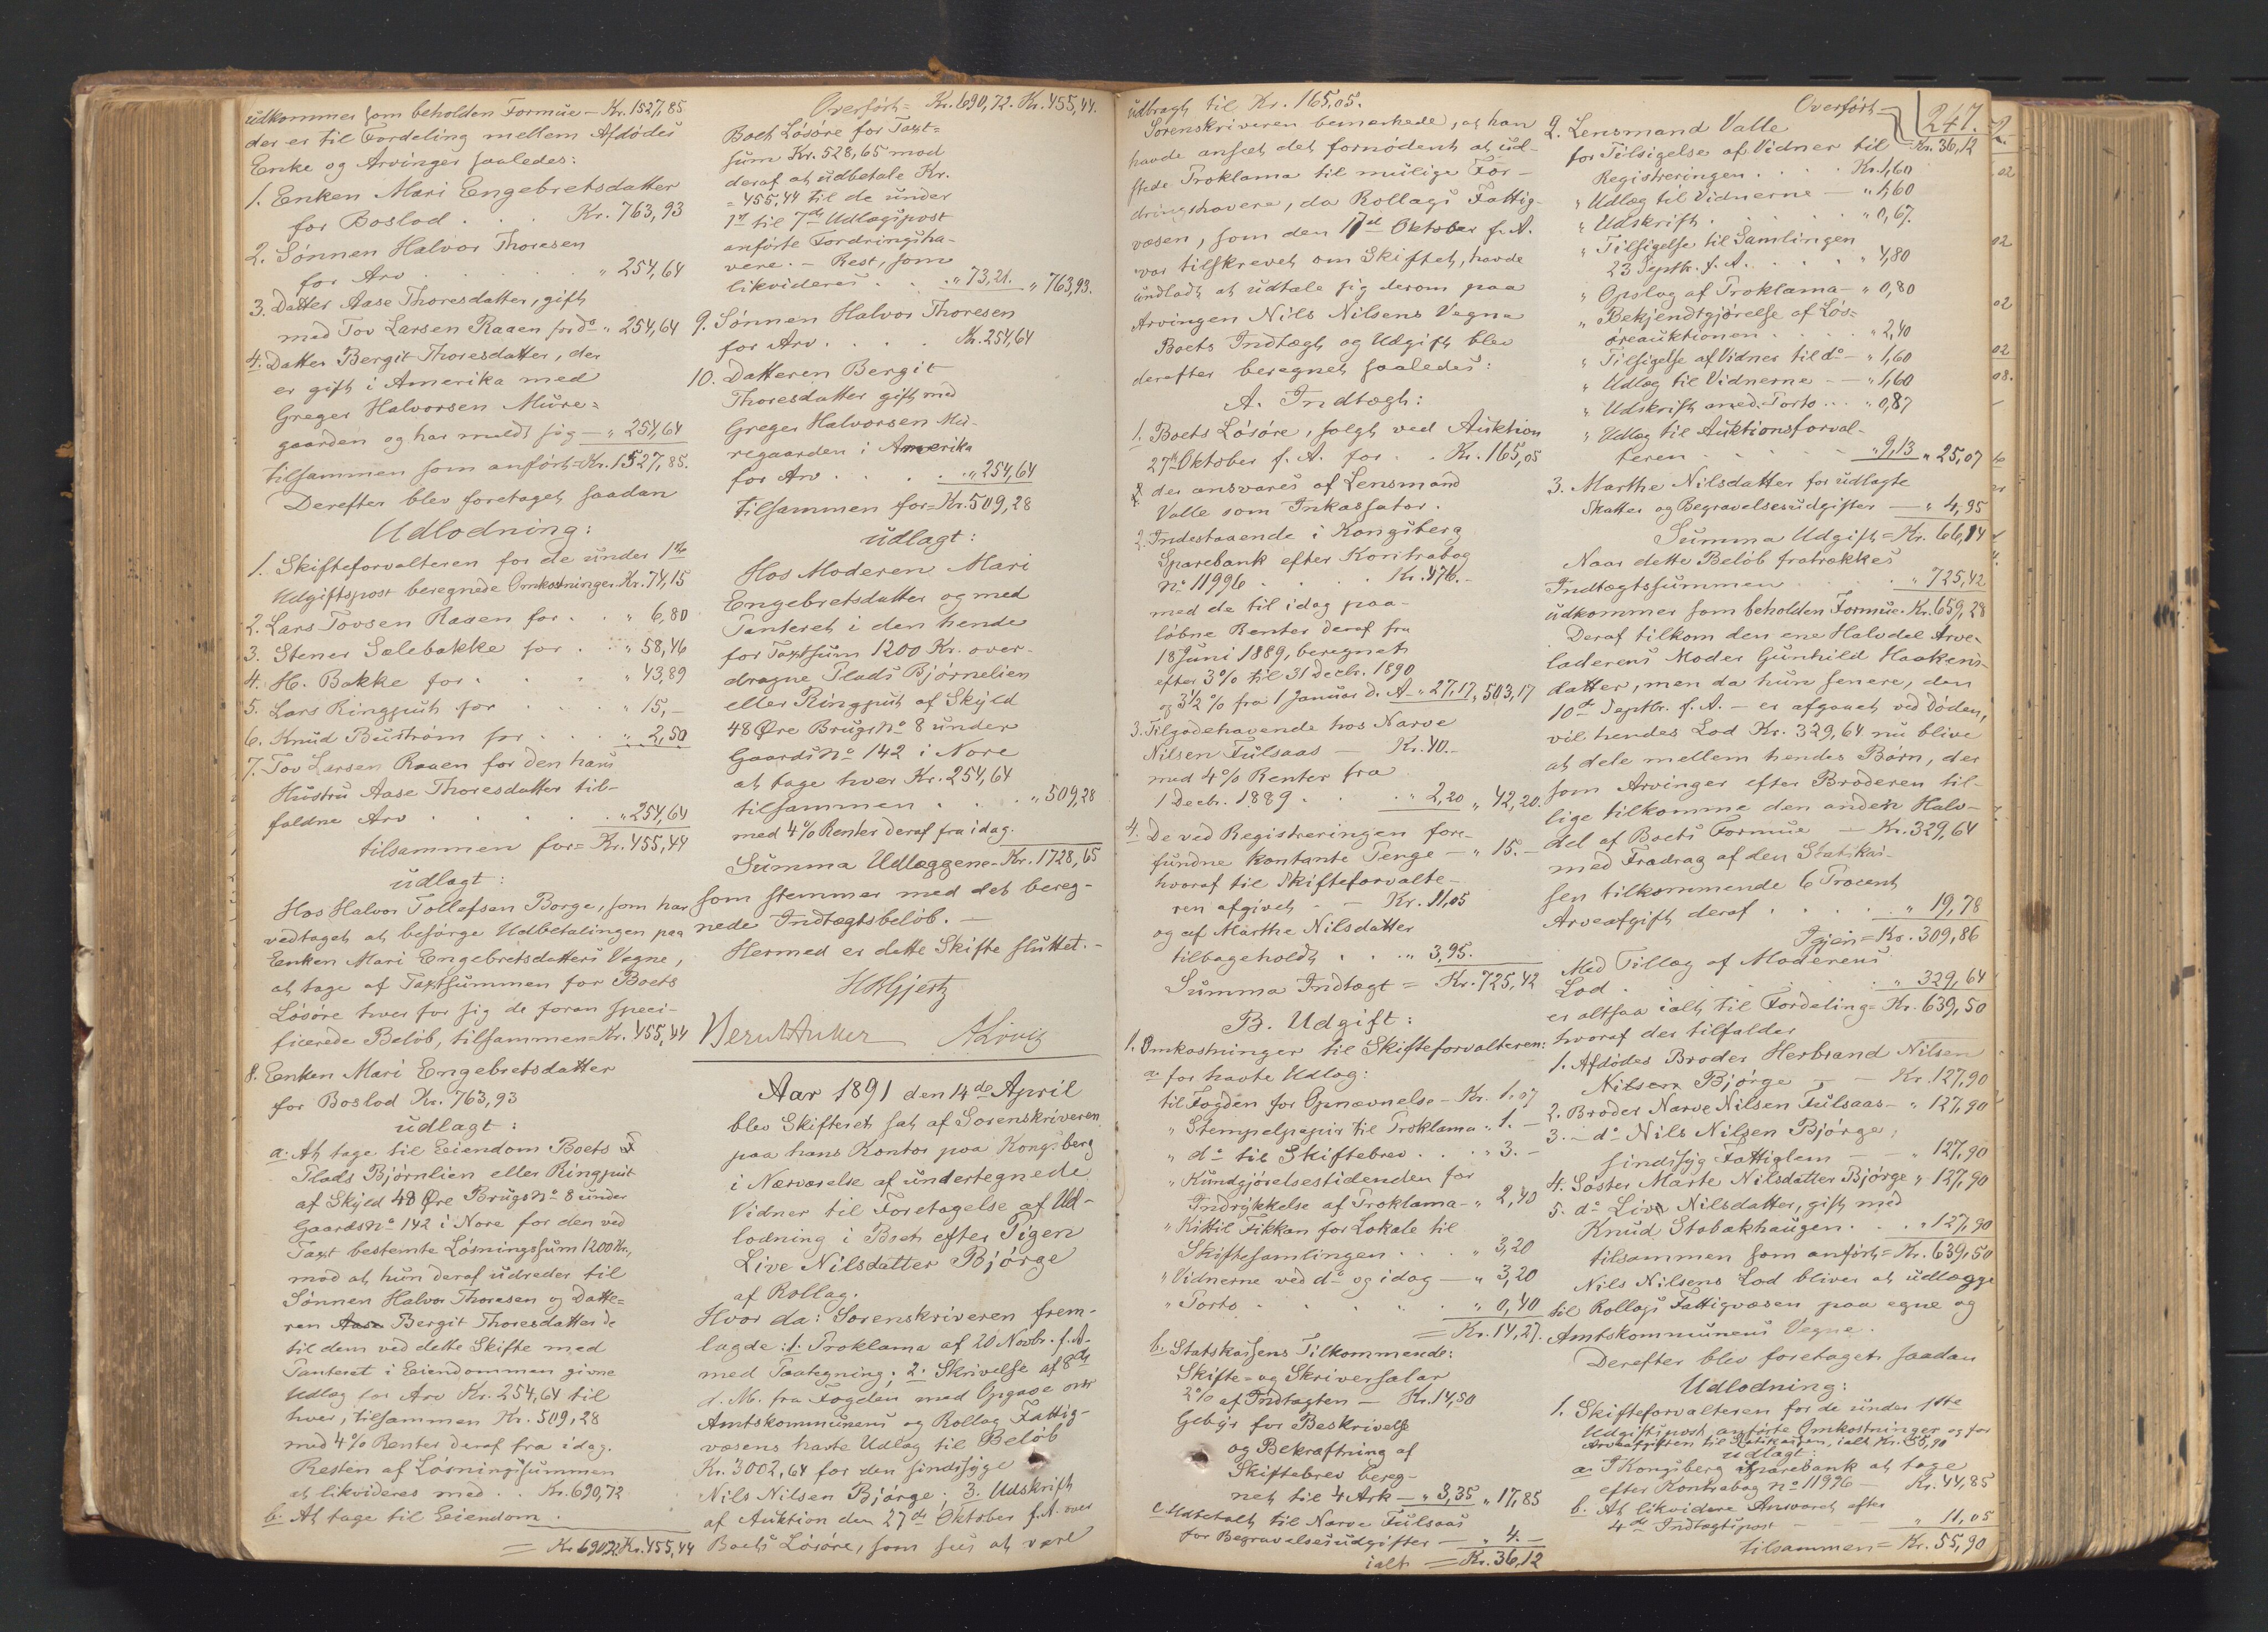 udkommer som beholden Formue — Kr. 1527,85
der er til Fordeling mellem Afdødes
Enke og Arvinger saaledes:
1. Enken Mari Engebretsdatter
for Boslod . . . Kr. 763,93
2. Sønnen Halvor Thoresen
for Arv . . . . . " 254,64
3. Datter Aase Thoresdatter, gift
med Tov Larsen Raaen for do " 254,64
4. Datter Bergit Thoresdatter, der
er gift i Amerika med
Greger Halvorsen Mure=
gaarden og har meldt sig — " 254,64
tilsammen som anført = Kr. 1527,85.
Derefter blev foretaget saadan
Udlodning:
1. Skifteforvalteren for de under 1ste
Udgiftspost beregnede Omkostninger Kr. 74,15
2. Lars Tovsen Raaen for . . " 6,80
3. Stener Sælebakke for . . " 58,46
4. H. Bakke for . . . . " 43,89
5. Lars Ringputt for . . . " 15,—
6. Knud Buström for . . . " 2,50
7. Tov Larsen Raaen for den hans
Hustru Aase Thoresdatter til-
faldne Arv . . . . . " 254,64
tilsammen for = Kr. 455,44
udlagt:
Hos Halvor Tollefsen Borge, som har
vedtaget at besørge Udbetalingen paa
Enken Mari Engebretsdatters Vegne,
at tage af Taxtsummen for Boets
Løsøre hver for sig de foran speci-
ficerede Beløb, tilsammen = Kr. 455,44
8. Enken Mari Engebretsdatter
for Boslod Kr. 763,93
udlagt:
a. At tage til Eiendom Boets
Plads Bjørnlien eller Ringput
af Skyld 48 Øre Brugs No 8 under
Gaards No 142 i Nore for den ved
Taxt bestemte Løsningssum 1200 Kr.,
mod at hun deraf udreder til
Sønnen Halvor Thoresen og Datte=
ren Aase Bergit Thoresdatter de
til dem ved dette Skifte med
Panteret i Eiendommen givne
Udlæg for Arv Kr. 254,64 til
hver, tilsammen Kr. 509,28
med 4 % Renter deraf fra idag.
Resten af Løsningssummen
at likvideres med . . Kr. 690,72
b. At tage til Eiendom .
= Kr. 690,72 Kr. 455,44
Overført = Kr. 690,72. Kr. 455,44.
Boets Løsøre for Taxt=
sum Kr. 528,65 mod
deraf at udbetale Kr.
= 455,44 til de under
1st til 7de Udlægspost
anførte Fordringsha-
vere. — Rest, som
likvideres . . . " 73,21. " 763,93.
9. Sønnen Halvor Thoresen
for Arv . . . . Kr. 254,64
10. Datteren Bergit
Thoresdatter gift med
Greger Halvorsen Mu-
regaarden i Amerika
for Arv . . . . " 254,64
tilsammen for = Kr. 509,28
udlagt:
Hos Moderen Mari
Engebretsdatter og med
Panteret i den hende
for Taxtsum 1200 Kr. over-
dragne Plads Bjørnelien
eller Ringput af Skyld
48 Øre Brugs No 8 under
Gaards No 142 i Nore
at tage hver Kr. 254,64
tilsammen . . . . " 509,28
med 4 % Renter deraf fra idag.
Summa Udlæggene = Kr. 1728,65
som stemmer med det bereg-
nede Indtægtsbeløb. —
Hermed er dette Skifte sluttet. —
Aar 1891 den 14de April
blev Skifteret sat af Sorenskriveren
paa hans Kontor paa Kongsberg
i Nærværelse af undertegnede
Vidner til Foretagelse af Ud-
lodning i Boet efter Pigen
Live Nilsdatter Bjørge
af Rollag.
Hvor da: Sorenskriveren frem-
lagde: 1. Proklama af 20 Novbr. f. A.
med Paategning; 2. Skrivelse af 8de
d. M. fra Fogden med Opgave over
Amtskommunens og Rollag Fattig-
væsens havte Udlæg til Beløb
Kr. 3002,64 for den sindssyge
Nils Nilsen Bjørge; 3. Udskrift
af Auktion den 27de Oktober f. A. over
Boets Løsøre, som sees at være
247.
udbragt til Kr. 165,05.
Sorenskriveren bemærkede, at han
havde anseet det fornødent at ud-
stede Proklama til mulige For-
dringshavere, da Rollags Fattig-
væsen, som den 17de Oktober f. A.
var tilskrevet om Skiftet, havde
undladt at udtale sig derom paa
Arvingen Nils Nilsens Vegne
Boets Indtægt og Udgift blev
derefter beregnet saaledes:
A. Indtægt:
1. Boets Løsøre, solgt ved Auktion
27de Oktober f. A. for . . Kr. 165,05
der ansvares af Lensmand
Valle som Inkassator.
2. Indestaaende i Kongsberg
Sparebank efter Kontrabog
No 11996 . . . . Kr. 476.—
med de til idag paa-
løbne Renter deraf fra
18 Juni 1889, beregnet
efter 3 % til 31 Decbr. 1890
og 3½ % fra 1 Januar d. A — " 27,17 " 503,17
3. Tilgodehavende hos Narve
Nilsen Fulsaas — Kr. 40.—
med 4 % Renter fra
1 Decbr. 1889 . . . . " 2,20 " 42,20.
4. De ved Registreringen fore-
fundne kontante Penge — " 15.—
hvoraf til Skifteforvalte-
ren afgivet — — Kr. 11,05
og af Marthe Nilsdatter
tilbageholdt . . . " 3,95.
Summa Indtægt = Kr. 725,42
B. Udgift:
1. Omkostninger til Skifteforvalteren:
a. for havte Udlæg:
til Fogden for Opnævnelse — Kr. 1.07
" Stempelpapir til Proklama " 1.—
" do til Skiftebrev . . . " 3.—
" Kundgjørelsestidenden for
Indrykkelse af Proklama — " 2,40
" Kittil Fikkan for Lokale til
Skiftesamlingen . . . " 3,20
" Vidnerne ved do og idag — " 3,20
" Porto . . . . . . " 0,40
= Kr. 14,27.
b. Statskassens Tilkommende:
Skifte- og Skriversalar
2 % af Indtægten — Kr. 14,50
Gebyr for Beskrivelse
og Bekræftning af
Skiftebrev bereg-
net til 4 Ark — " 3,35 " 17,85
c. Udbetalt til Narve Fulsaas
for Begravelsesudgifter — " 4.—
ialt = Kr. 36,12
Overført — Kr. 36,12
2. Lensmand Valle
for Tilsigelse af Vidner til
Registreringen . . . . Kr. 1,60
" Udlæg til Vidnerne — " 1,60
" Udskrift . . . . . " 0,67.
" Tilsigelse til Samlingen
23 Septbr. f. A. . . . . " 4,80
" Opslag af Proklama — " 0,80
" Bekjendtgjørelse af Løs=
øreauktionen . . . . " 2,40
" Tilsigelse af Vidner til do — " 1,60
" Udlæg til Vidnerne — — " 1,60
" Udskrift med Porto . . " 0,87
" Udlæg til Auktionsforval-
teren . . . . . " 9,13 " 25,07
3. Marthe Nilsdatter for udlagte
Skatter og Begravelsesudgifter — " 4,95
Summa Udgift = Kr. 66,14
Naar dette Beløb fratrækkes
Indtægtssummen . . . . " 725,42
udkommer som beholden Formue. Kr. 659,28
Deraf tilkom den ene Halvdel Arve-
laderens Moder Gunhild Haakens-
datter, men da hun senere, den
10de Septbr. f. A. — er afgaaet ved Døden,
vil hendes Lod Kr. 329,64 nu blive
at dele mellem hendes Børn, der
som Arvinger efter Broderen til-
lige tilkomme den anden Halv-
del af Boets Formue — Kr. 329,64
med Fradrag af den Statskas-
sen tilkommende 6 Procent
Arveafgift deraf . . . . . " 19,78
Igjen = Kr. 309,86
Med Tillæg af Moderens
Lod . . . . . . . " 329,64
er altsaa ialt til Fordeling = Kr. 639,50
hvoraf der tilfalder
1. Afdødes Broder Herbrand Nilsen
Nilsen Bjørge — — Kr. 127,90
2. Broder Narve Nilsen Fulsaas — " 127,90
3. — do Nils Nilsen Bjørge,
sindssyg Fattiglem — — " 127,90
4. Søster Marte Nilsdatter Bjørge " 127,90
5. do Live Nilsdatter, gift med
Knud Stabakhaugen . . . " 127,90
tilsammen som anført = Kr. 639,50
Nils Nilsens Lod bliver at udlægge
til Rollags Fattigvæsen paa egne og
Amtskommunens Vegne.
Derefter blev foretaget saadan
Udlodning:
1. Skifteforvalteren for de under 1ste
Udgiftspost anførte Omkostninger og for
Arveafgiften til Statskassen, ialt Kr. 55,90
udlagt:
a. I Kongsberg Sparebank at tage
efter Kontrabog No 11996 — Kr. 44,85
b. At likvidere Ansvaret efter
4de Indtægtspost — — " 11,05
tilsammen = Kr. 55,90